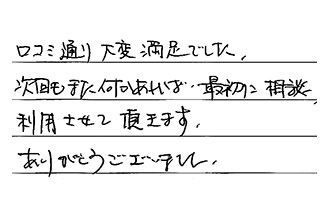 口コミ通り大変満足でした。
次回もまた何かあれば、最初に相談
利用させて頂きます。
ありがとうございました。